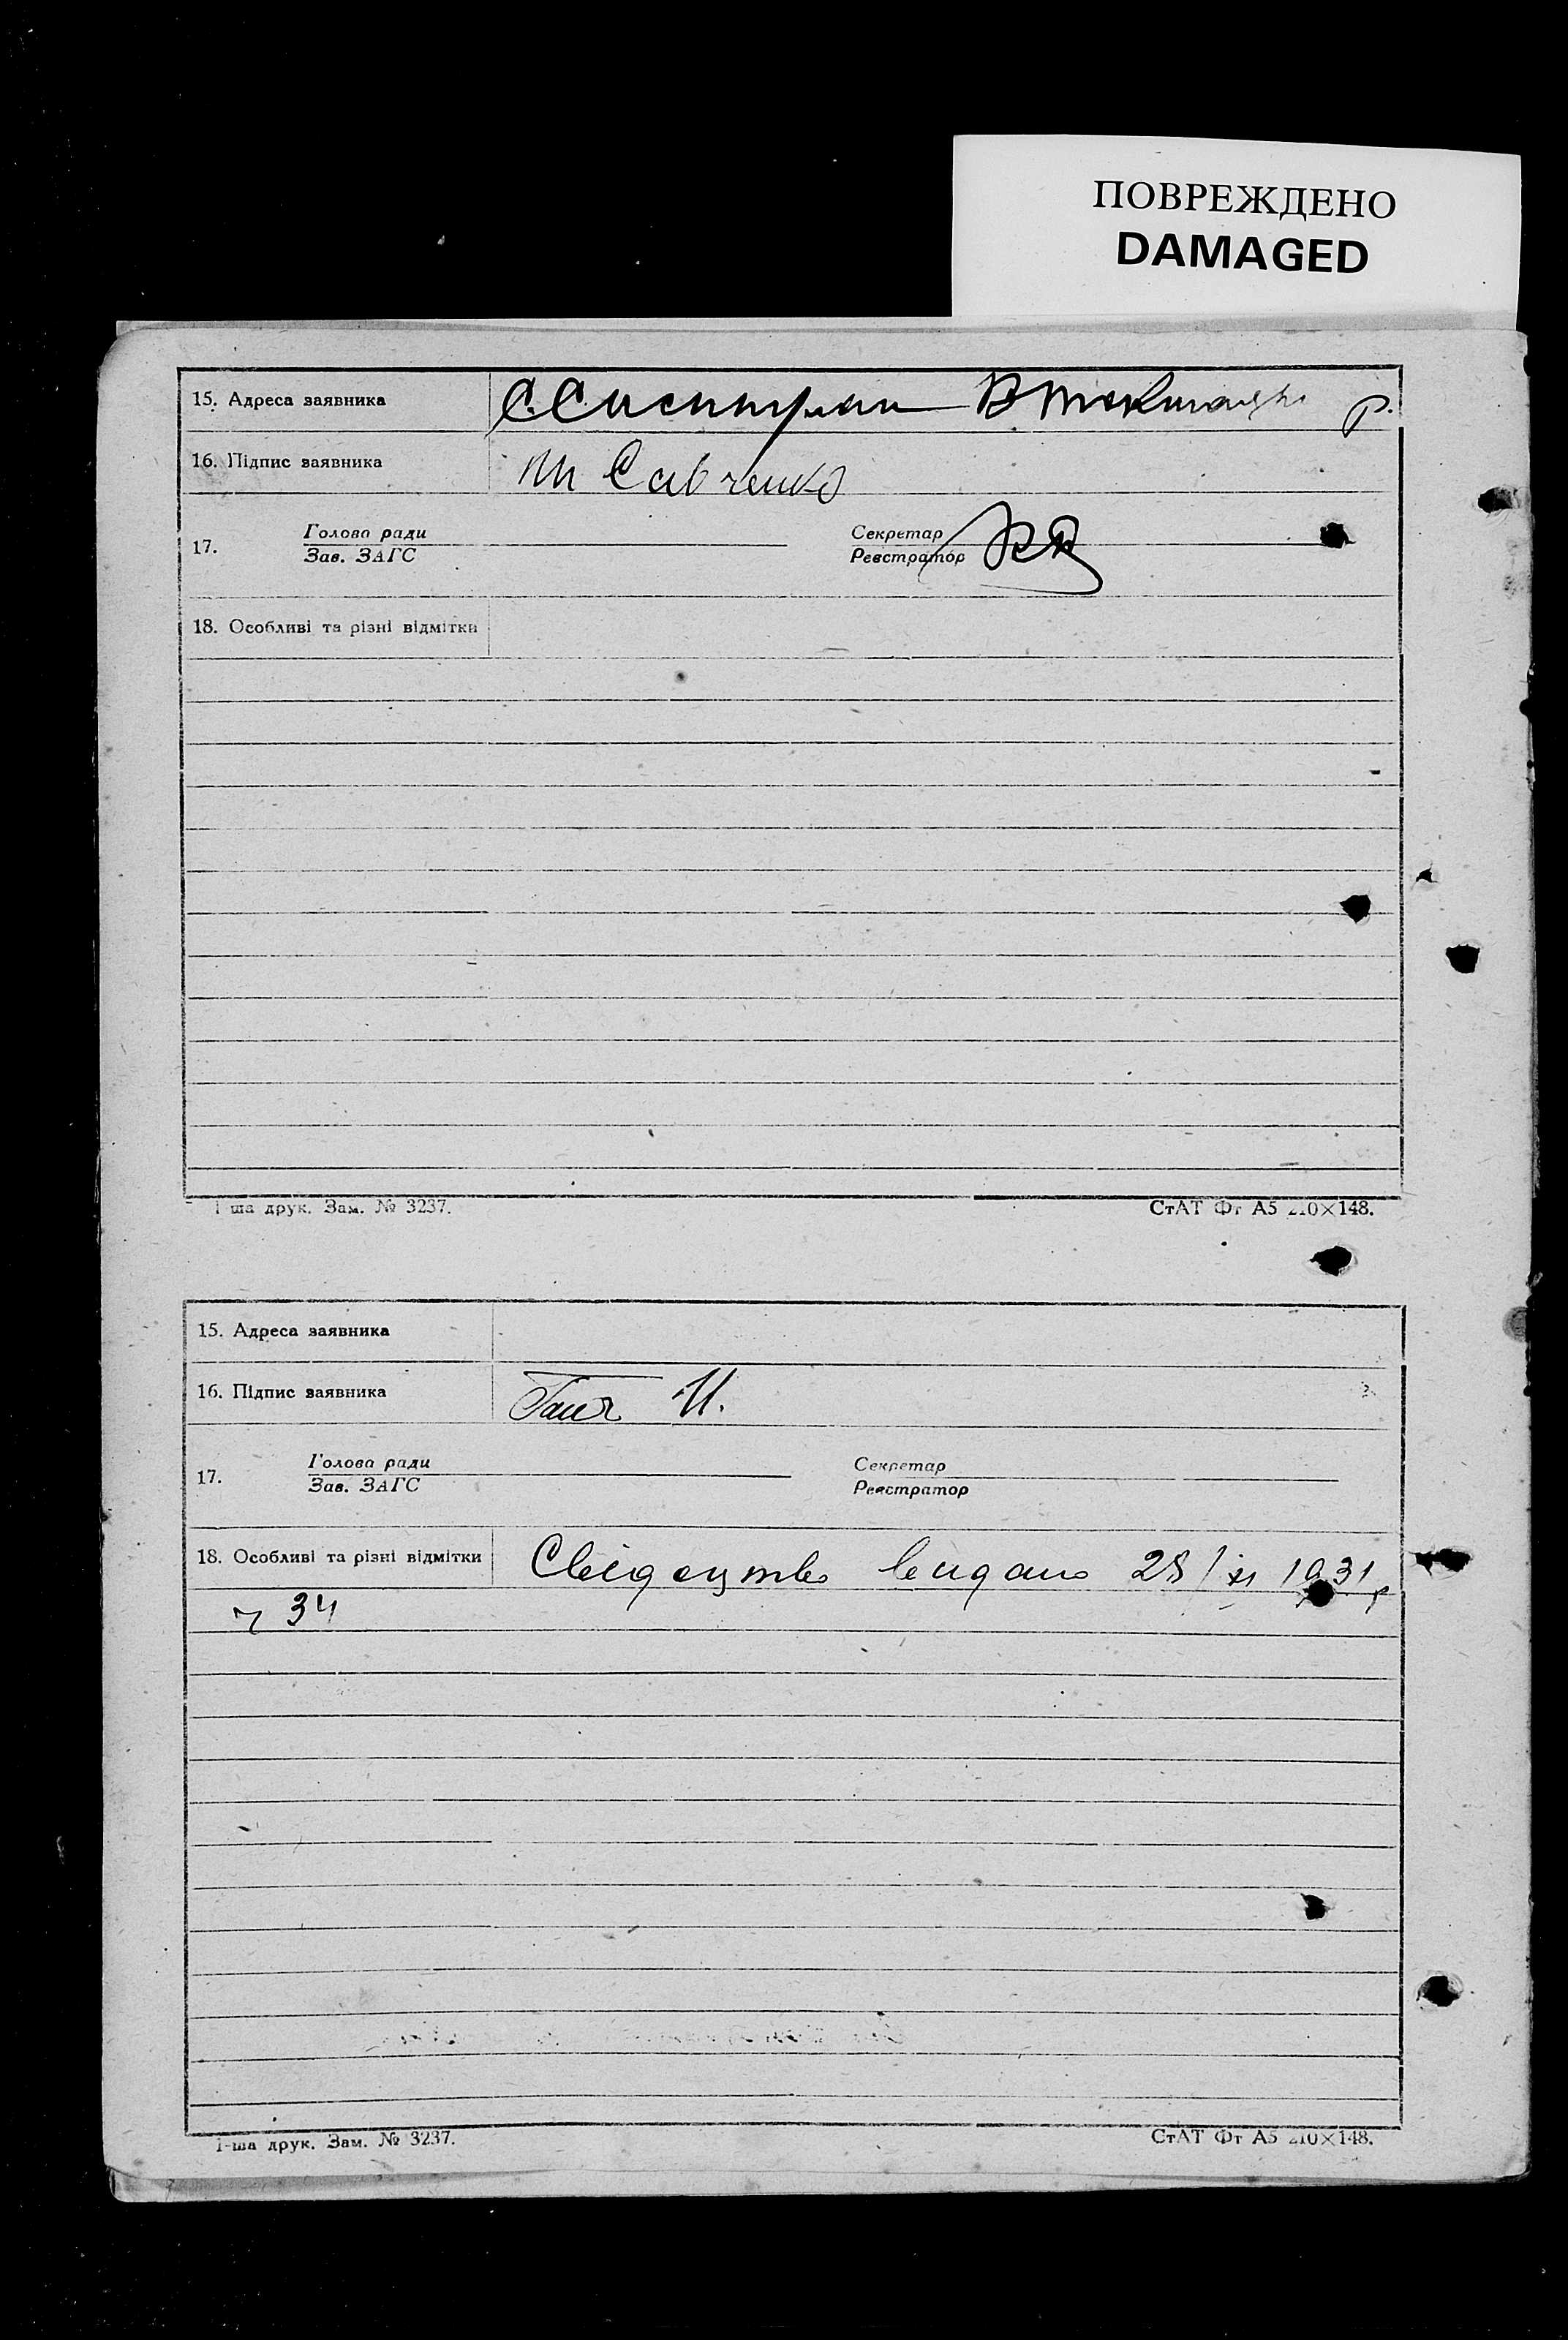 ПОВРЕЖДЕНО
DAMAGED
15. Адреса заявника
16. Підпис заявника М Савченко
17. Голова ради Секретар
Зав. ЗАГС Реєстратор
18. Особливі та різні відмітки
1-ша друк. Зам. № 3237. СтАТ Фт А5 210×148.
15. Адреса заявника
16. Підпис заявника Ганч И.
17. Голова ради Секретар
Зав. ЗАГС Реєстратор
18. Особливі та різні відмітки Свідоцтво видано 28/XI 1931 р
ч 34
1-ша друк. Зам. № 3237. СтАТ Фт А5 210×148.